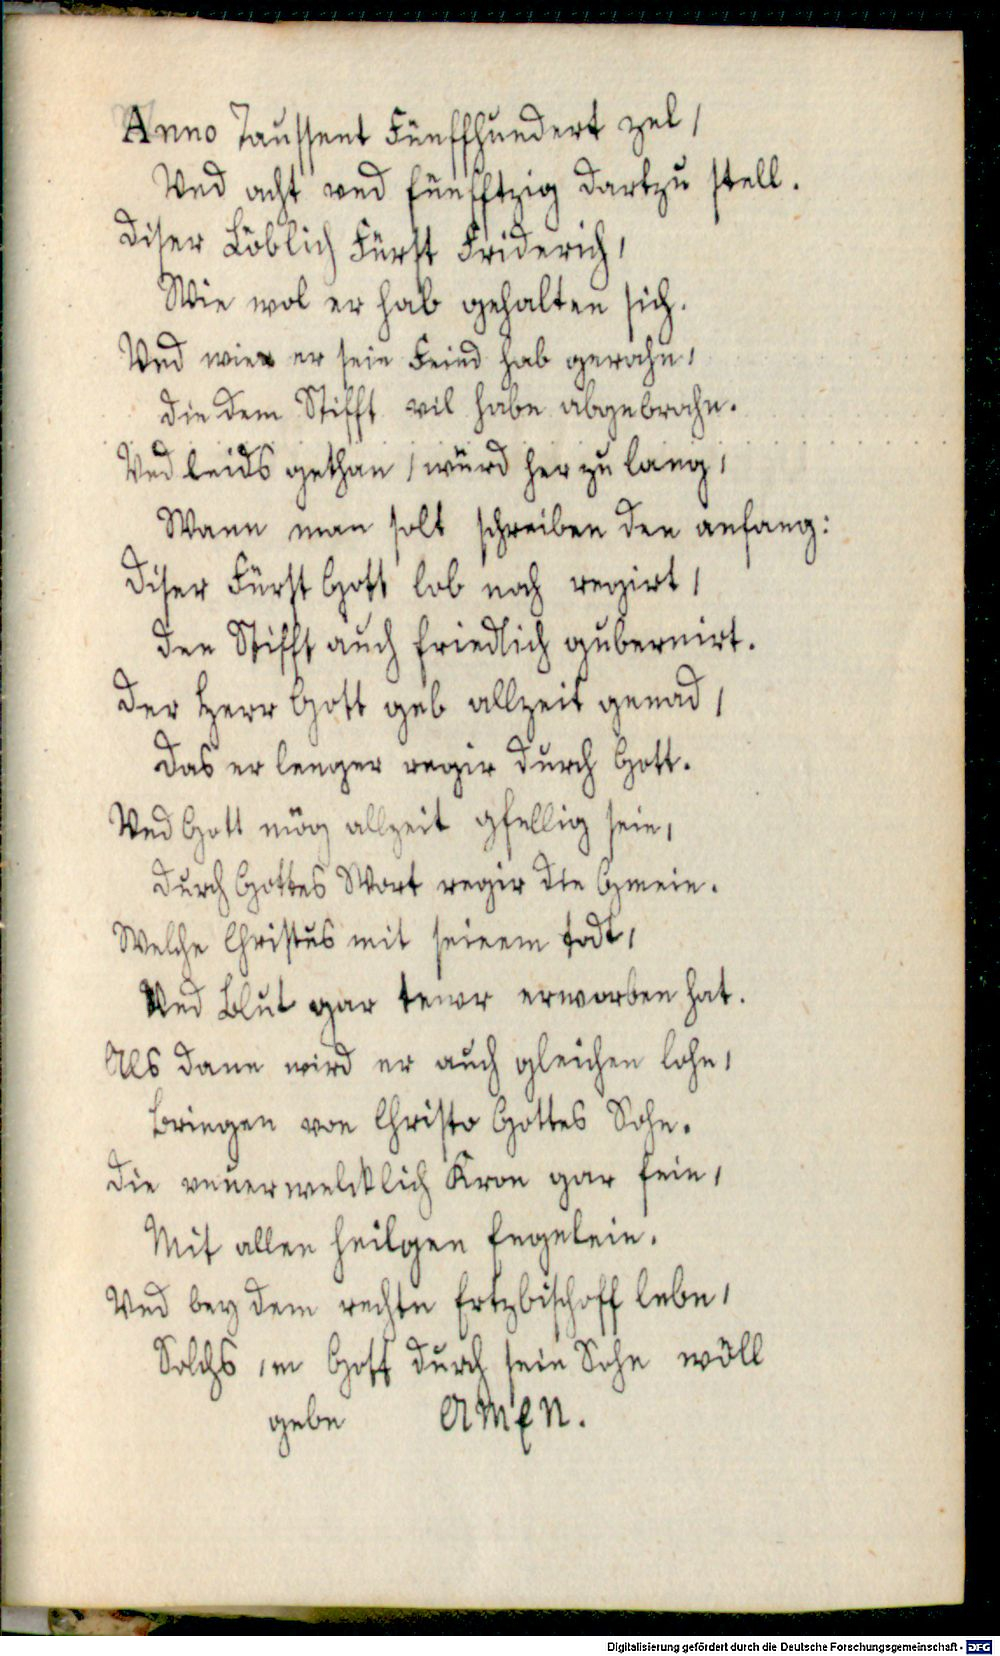 Anno Taussent Fünffhundert zel /
Vnd acht vnd fünfftzig dartzu stell.
Diser Löblich Fürst Friderich /
Wie wol er hab gehalten sich.
Vnd wie er sein Feind hab gerochn /
die dem Stifft vil habn abgebrochn.
Vnd leids gethan / würd her zu lang /
Wann man solt schreiben den anfang:
Diser Fürst Gott lob noch regirt /
den Stifft auch friedlich gubernirt.
Der Herr Gott geb allzeit genad /
das er lenger regir durch Gott.
Vnd Gott mög allzeit gfellig sein /
durch Gottes Wort regir die Gmein.
Welche Christus mit seinem todt /
Vnd Blut gar tewr erworben hat.
Als dann wird er auch gleichen lohn /
Bringen von Christo Gottes Sohn.
die vnuerwelcklich Kron gar fein /
Mit allen heilgen Engelein.
Vnd bey dem rechtn Ertzbischoff lebn /
Solchs im Gott durch sein Sohn wöll
gebn AMEN.
Digitalisierung gefördert durch die Deutsche Forschungsgemeinschaft - DFG